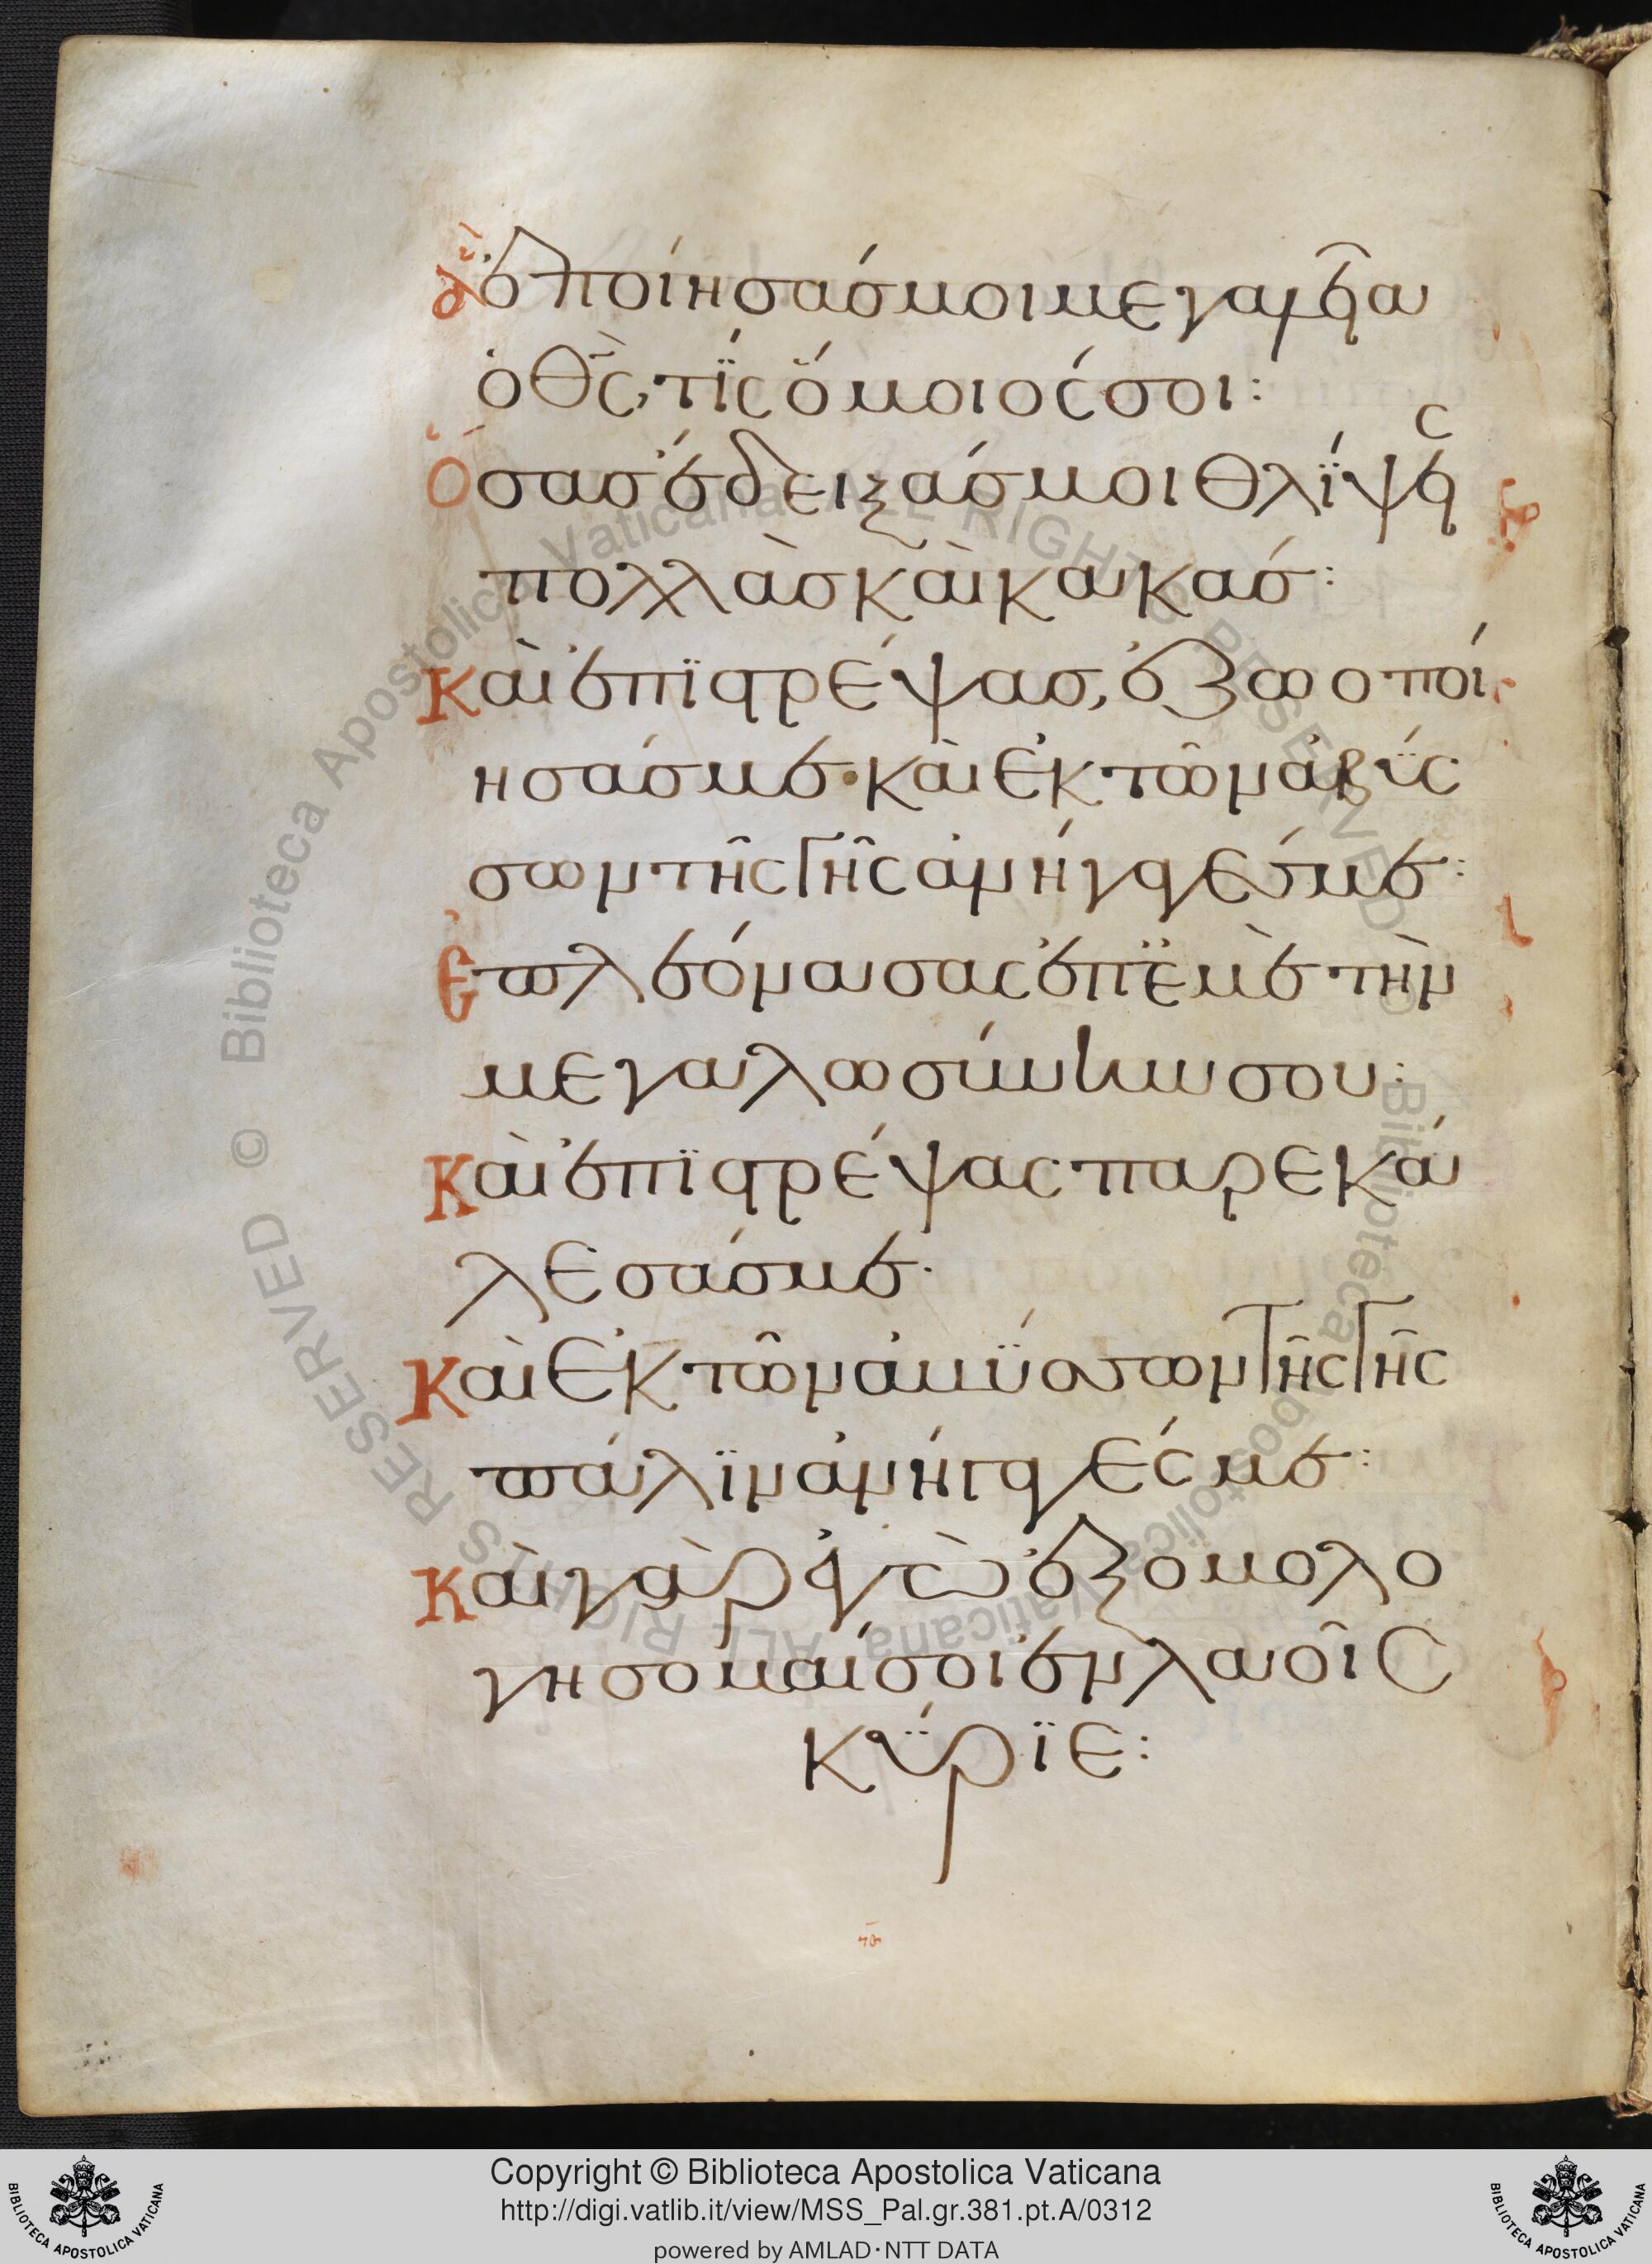 ἃ ἐποίησάς μοι μεγαλεῖα
ὁ θς̄, τίς ὅμοιός σοι:
Ὅσας ἔδειξάς μοι θλίψεις
πολλὰς καὶ κακάς:
Καὶ ἐπϊστρέψας, ἐζωοποί
ησάς με· καὶ ἐκ τῶν ἀβύσ
σων τῆς γῆς ἀνήγαγές με:
Ἐπλεόνασας ἐπ' ἐμὲ τὴν
μεγαλωσύνην σου:
Καὶ ἐπϊστρέψας παρεκά
λεσάς με·
Καὶ ἐκ τῶν ἀβύσσων τῆς γῆς
πάλϊν ἀνήγαγές με:
Καὶ γὰρ ἐγὼ ἐξομολο
γήσομαί σοι ἐν λαοῖς
κύρϊε:
Copyright © Biblioteca Apostolica Vaticana
http://digi.vatlib.it/view/MSS_Pal.gr.381.pt.A/0312
powered by AMLAD·NTT DATA
BIBLIOTECA APOSTOLICA VATICANA
BIBLIOTECA APOSTOLICA VATICANA